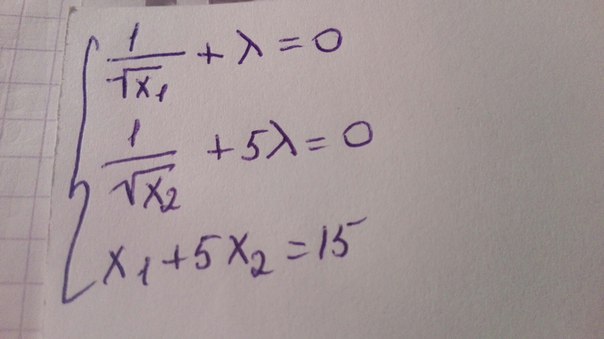 1/√x₁ + λ = 0
1/√x₂ + 5λ = 0
x₁ + 5x₂ = 15